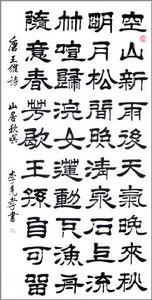 空山新雨後天氣晚來秋
明月松間照清泉石上流
竹喧歸浣女蓮動下漁舟
隨意春芳歇王孫自可留
唐王維詩 山居秋暝 李克書